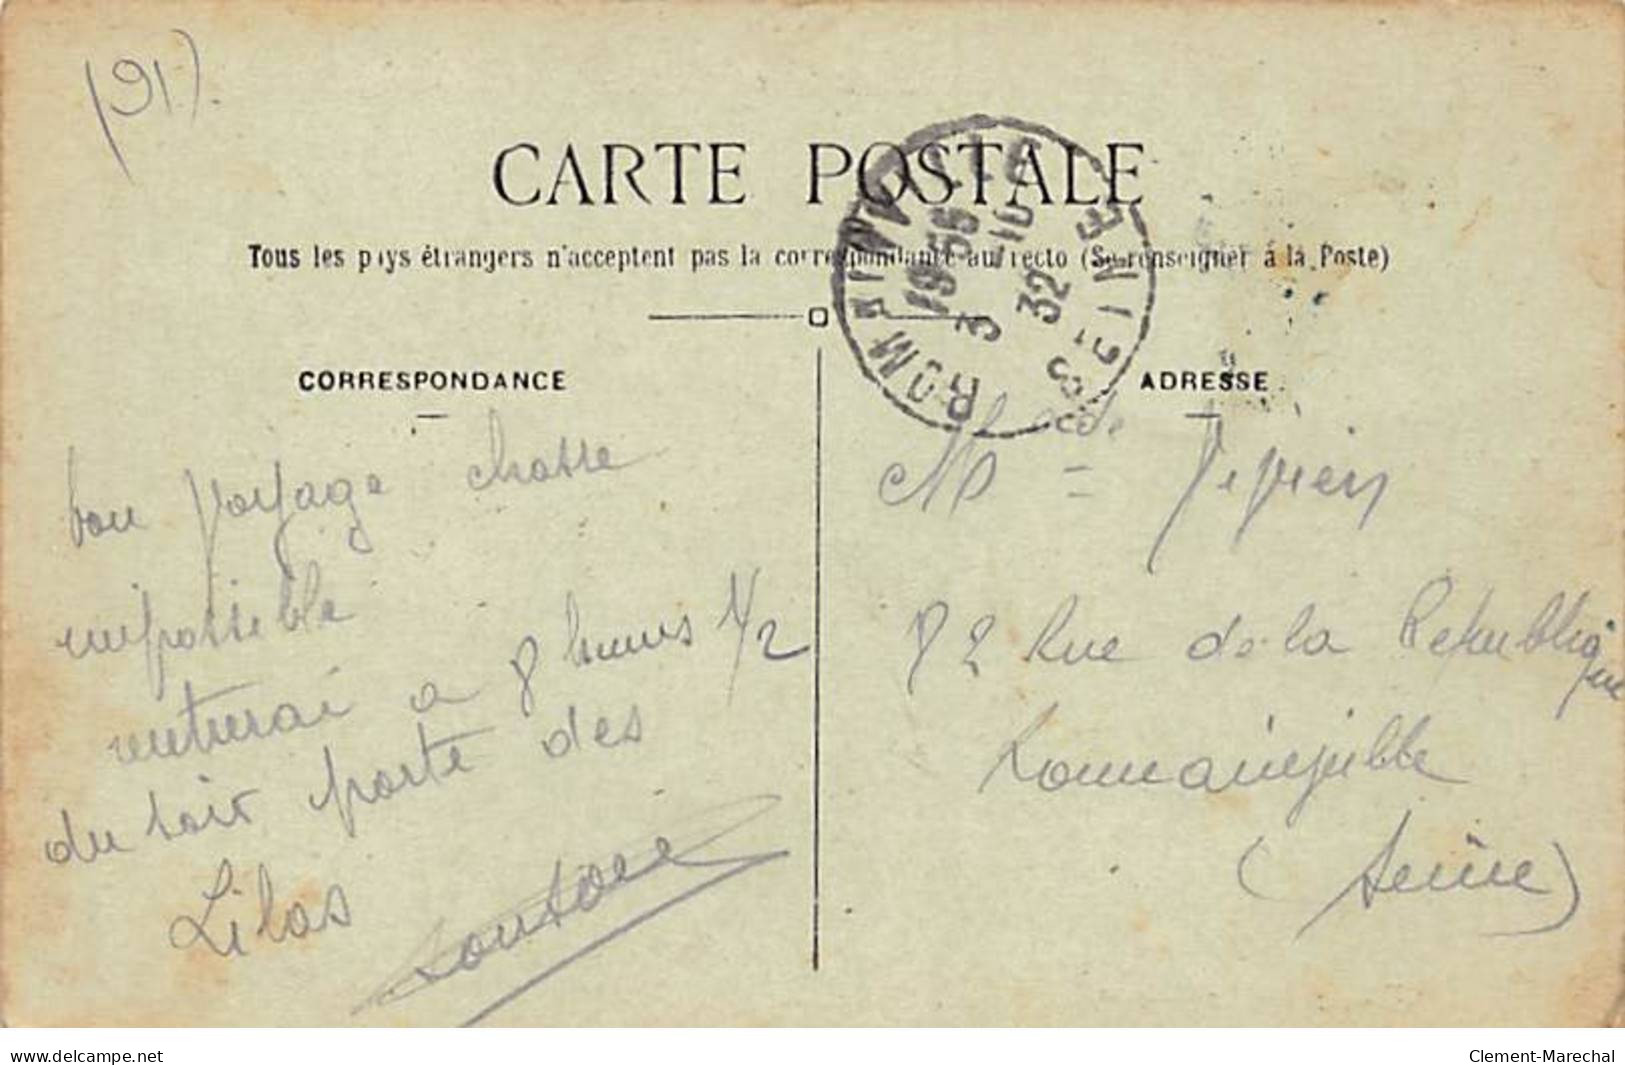 (91).
CARTE POSTALE
Tous les pays étrangers n'acceptent pas la correspondance au recto (Se renseigner à la Poste)
CORRESPONDANCE
bon voyage chasse
impossible
rentrerai a 8 heures 1/2
du soir porte des
Lilas
ROMAINVILLE
19 56
3 -10
32
SEINE
ADRESSE
Mde =
82 Rue de la République
Romainville
(Seine)
delcampe.net
Clement-Marechal